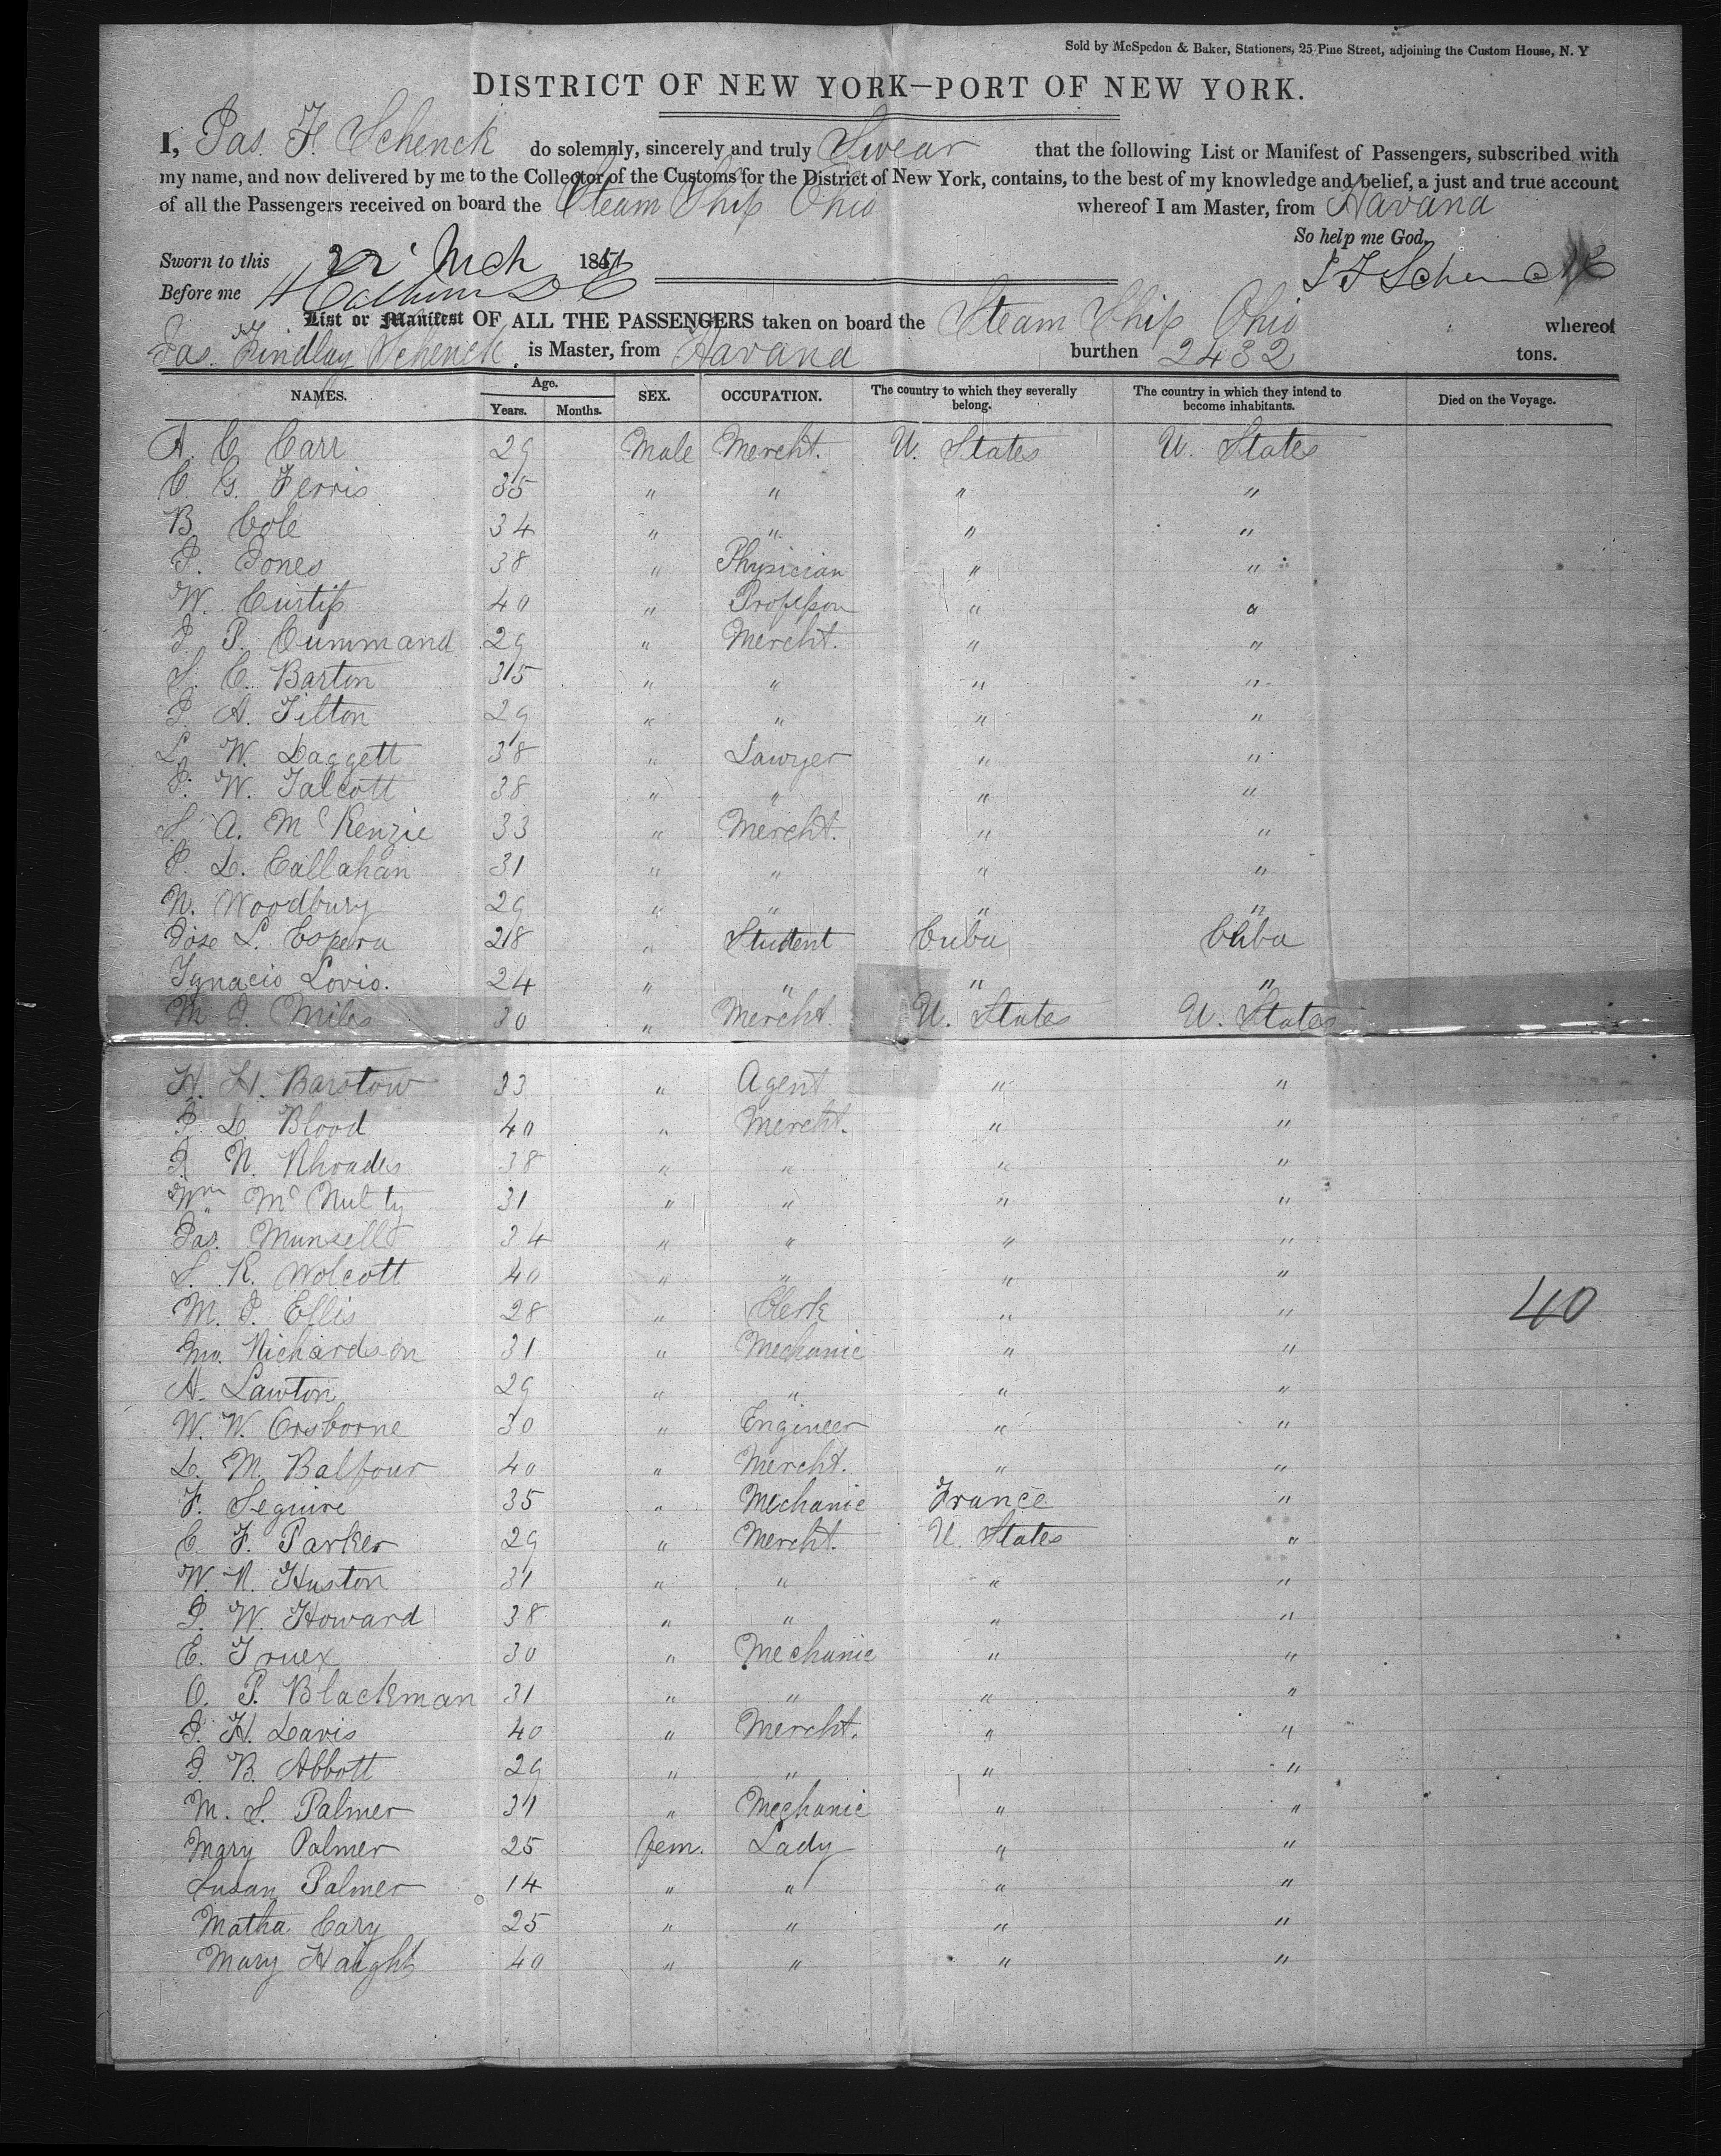 Sold by McSpedon & Baker, Stationers, 25 Pine Street, adjoining the Custom House, N. Y
DISTRICT OF NEW YORK—PORT OF NEW YORK.
I, Jas. F. Schenck do solemnly, sincerely and truly Swear that the following List or Manifest of Passengers, subscribed with
my name, and now delivered by me to the Collector of the Customs for the District of New York, contains, to the best of my knowledge and belief, a just and true account
of all the Passengers received on board the Steam Ship Ohio whereof I am Master, from Havana
So help me God.
Sworn to this 22 Mch 1851 J F Schenck
Before me
List or Manifest OF ALL THE PASSENGERS taken on board the Steam Ship Ohio whereof
Jas. Findlay Schenck. is Master, from Havana burthen 2432 tons.
NAMES. Age. Years. Months. SEX. OCCUPATION. The country to which they severally belong. The country in which they intend to become inhabitants. Died on the Voyage.
A. C. Carr 29 Male Mercht. U. States U. States
C. G. Ferris 35 " " " "
B. Cole 34 " " " "
J. Jones 38 " Physician " "
W. Curtiss 40 " Professor " "
J. P. Cummand 29 " Mercht. " "
S. C. Barton 35 " " " "
J. A. Tilton 29 " " " "
L. W. Daggett 38 " Lawyer " "
J. W. Talcott 38 " " " "
S. A. McKenzie 33 " Mercht. " "
P. D. Callahan 31 " " " "
N. Woodbury 29 " " " "
Jose L. Espera 28 " Student Cuba Cuba
Ignacio Lovio. 24 " " " "
M. J. Miles 30 " Mercht. U. States U. States
H. H. Barstow 33 " Agent " "
P. D. Blood 40 " Mercht. " "
R. N. Rhoades 38 " " " "
Wm. McNulty 31 " " " "
Jas. Munsell 34 " " " "
S. R. Wolcott 40 " " " "
M. J. Ellis 28 " Clerk " " 40
Jno. Richardson 31 " Mechanic " "
A. Lawton 29 " " " "
W. W. Orsborne 30 " Engineer " "
D. M. Balfour 40 " Mercht. " "
F. Seguire 35 " Mechanic France "
C. F. Parker 29 " Mercht. U. States "
W. N. Huston 31 " " " "
J. W. Howard 38 " " " "
E. Truex 30 " Mechanic " "
O. P. Blackman 31 " " " "
J. H. Davis 40 " Mercht. " "
J. B. Abbott 29 " " " "
M. S. Palmer 31 " Mechanic " "
Mary Palmer 25 Fem. Lady " "
Susan Palmer 14 " " " "
Matha Cary 25 " " " "
Mary Haight 40 " " " "